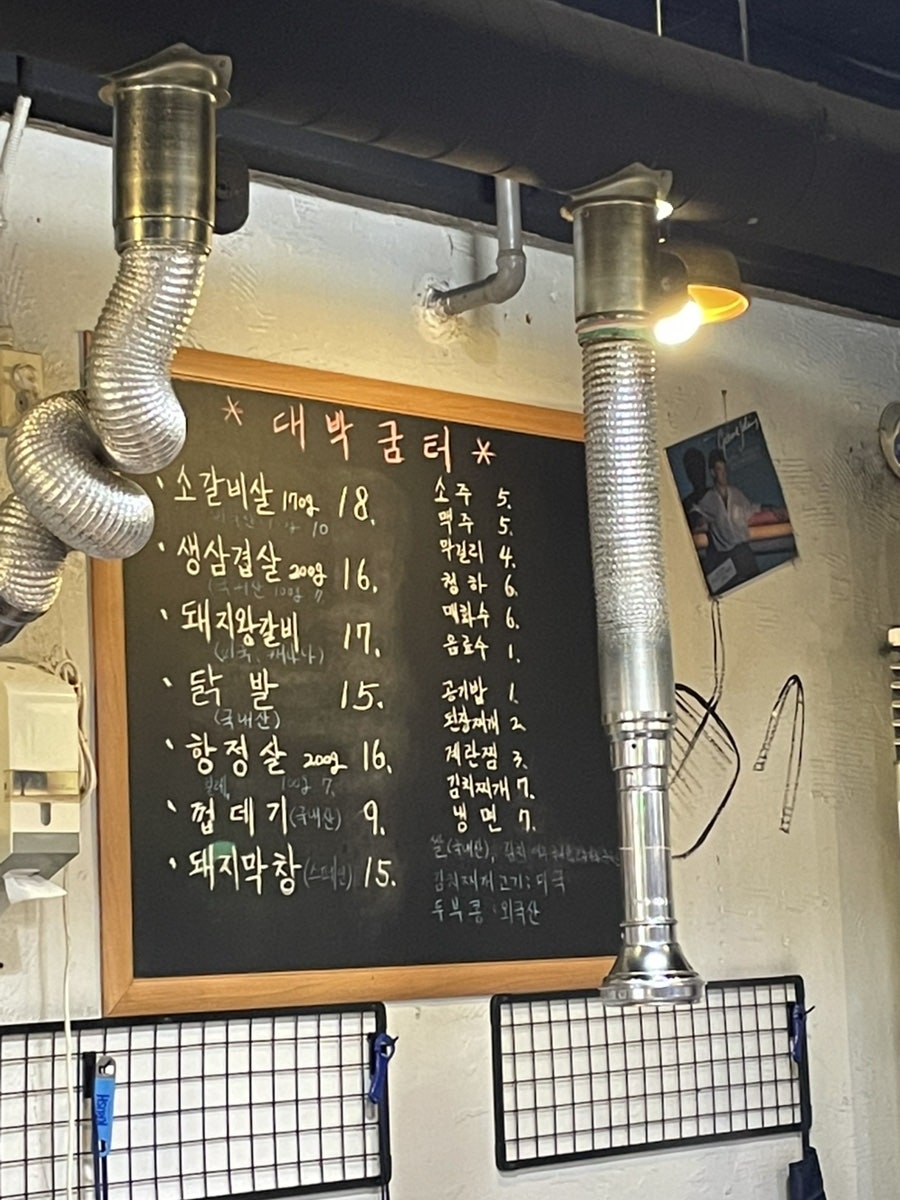 * 대박굼터 *
· 소갈비살 170g 18.
· 생삼겹살 200g 16.
(국내산 100g 7
· 돼지왕갈비 17.
(미국, 캐나다)
· 닭발 15.
(국내산)
· 항정살 200g 16.
100g 7.
· 껍데기 (국내산) 9.
· 돼지막창 (스페인) 15.
소주 5.
맥주 5.
막걸리 4.
청하 6.
매화수 6.
음료수 1.
공기밥 1.
된장찌개 2.
계란찜 3.
김치찌개 7.
냉면 7.
쌀(국내산), 김치
김치찌개 고기: 미국
두부콩: 외국산